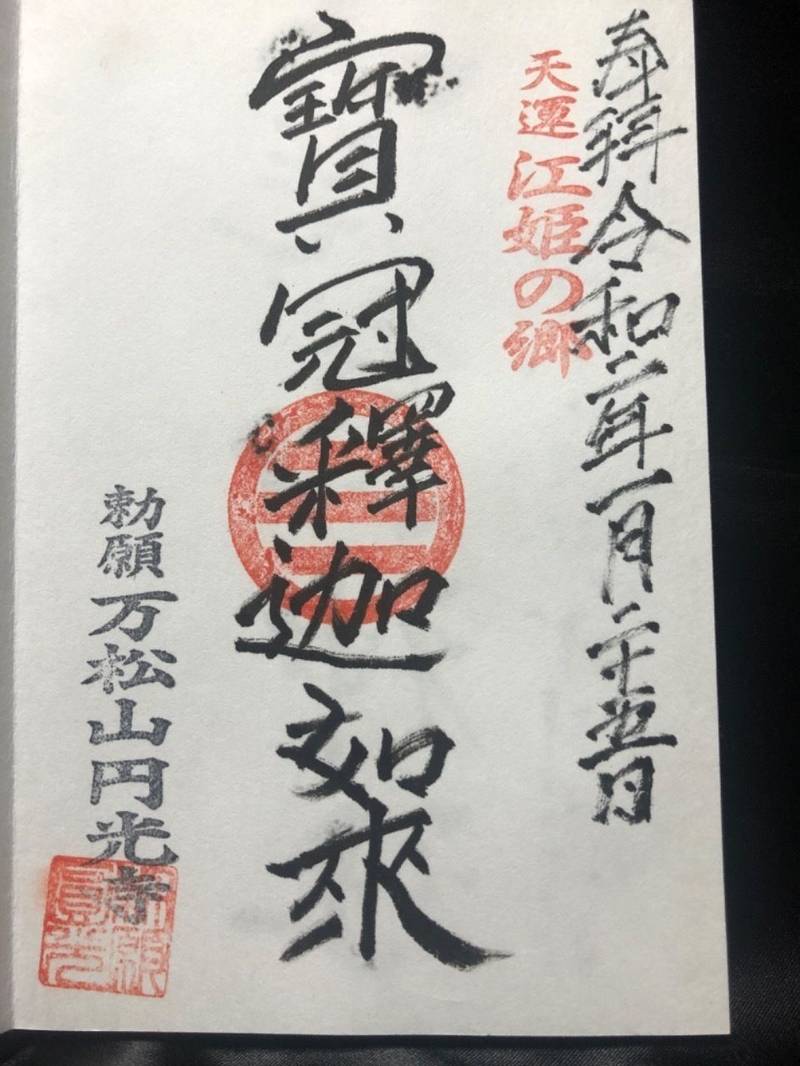 奉拝 令和二年一月二十五日
天運 江姫の郷
寶冠釋迦如來
勅願 万松山円光寺